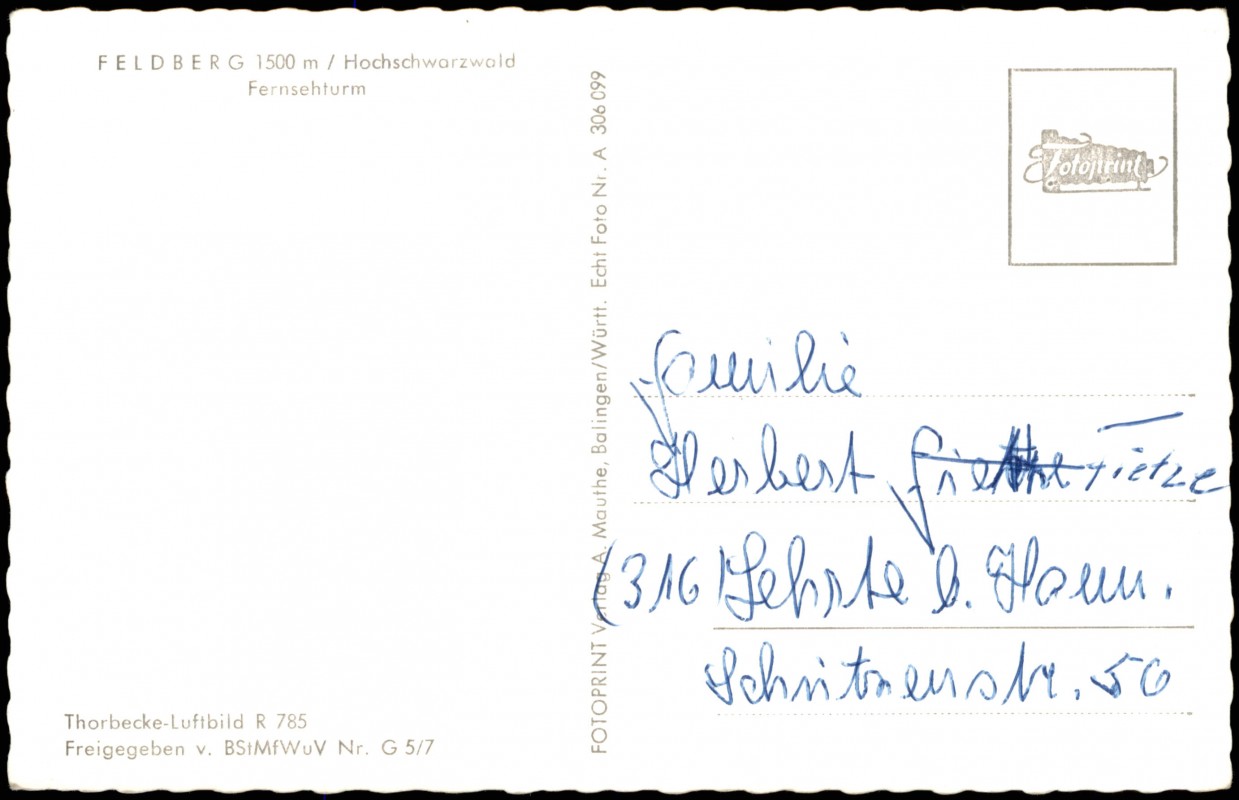 FELDBERG 1500 m / Hochschwarzwald
Fernsehturm
Thorbecke-Luftbild R 785
Freigegeben v. BStMfWuV Nr. G 5/7
FOTOPRINT Verlag A. Mauthe, Balingen/Württ. Echt Foto Nr. A 306 099
Fotoprint
Familie
Herbert Tietze
(316) Lehrte b. Hann.
50